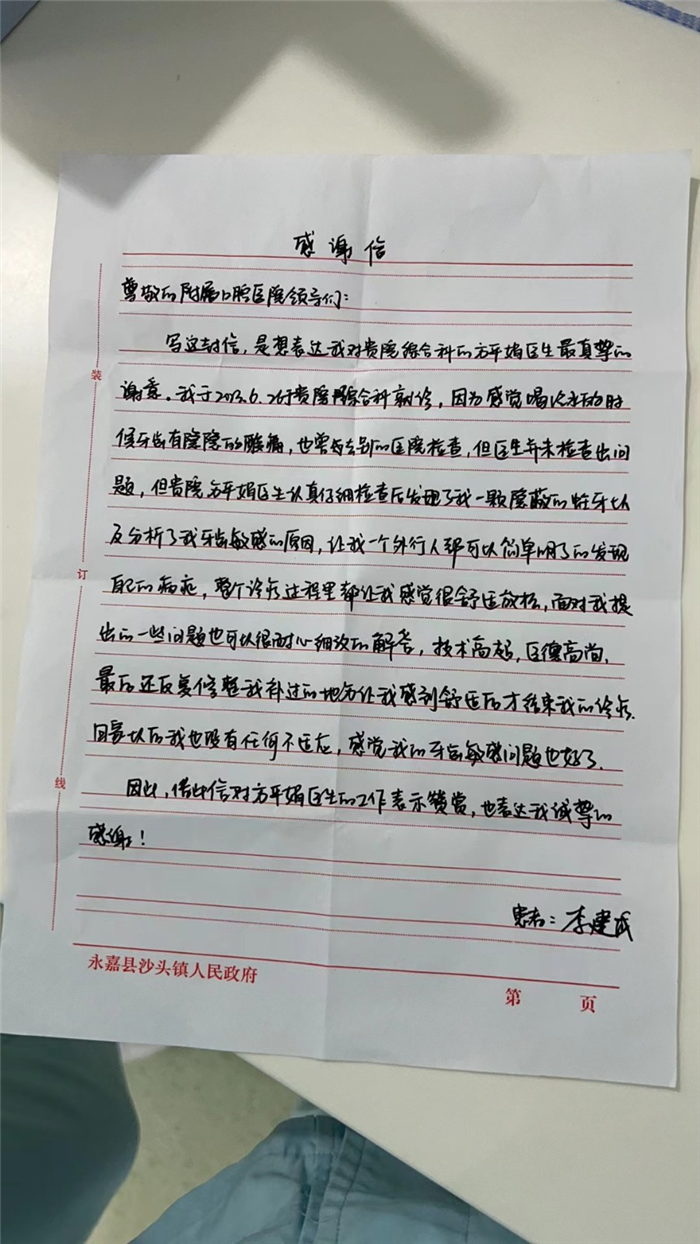 感谢信
尊敬的附属口腔医院领导们：
写这封信，是想表达我对贵院综合科的方平娟医生最真挚的
谢意。我于2023.6.26于贵院综合科就诊，因为感觉喝冷水的时
候牙齿有隐隐的酸痛，也曾去别的医院检查，但医生并未检查出问
题，但贵院方平娟医生认真仔细检查后发现了我一颗隐蔽的蛀牙以
及分析了我牙齿敏感的原因，让我一个外行人都可以简单明了的发现
自己的病症，整个诊疗过程里都让我感觉很舒适放松，面对我提
出的一些问题也可以很耐心细致的解答，技术高超，医德高尚，
最后还反复修整我补过的地方让我感到舒适后才结束我的诊疗.
回家以后我也没有任何不适应，感觉我的牙齿敏感问题也好了.
因此，借此信对方平娟医生的工作表示赞赏，也表达我诚挚的
感谢！
患者：李建成
装
订
线
永嘉县沙头镇人民政府
第 页